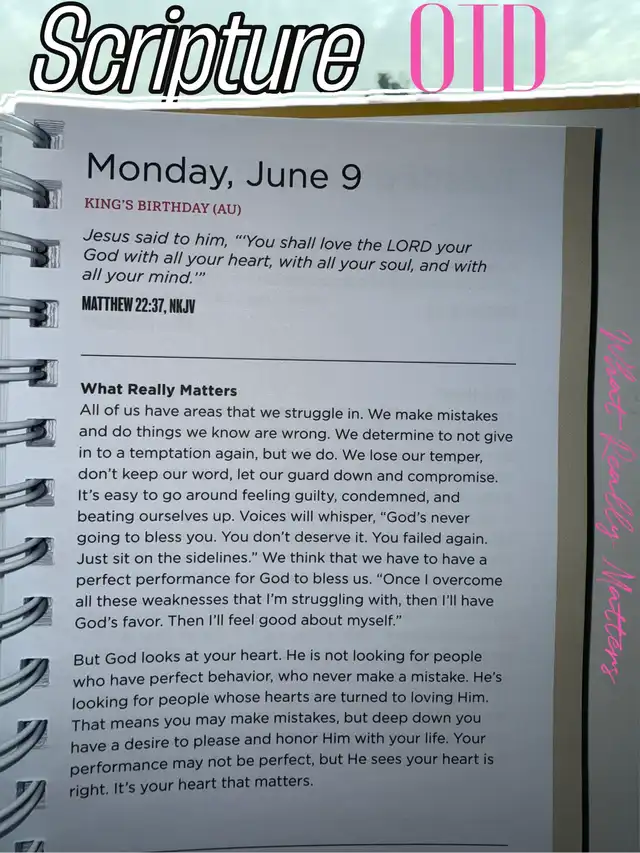 Scripture OTD
Monday, June 9
KING'S BIRTHDAY (AU)
Jesus said to him, “‘You shall love the LORD your
God with all your heart, with all your soul, and with
all your mind.’”
MATTHEW 22:37, NKJV
What Really Matters
All of us have areas that we struggle in. We make mistakes
and do things we know are wrong. We determine to not give
in to a temptation again, but we do. We lose our temper,
don’t keep our word, let our guard down and compromise.
It’s easy to go around feeling guilty, condemned, and
beating ourselves up. Voices will whisper, “God’s never
going to bless you. You don’t deserve it. You failed again.
Just sit on the sidelines.” We think that we have to have a
perfect performance for God to bless us. “Once I overcome
all these weaknesses that I’m struggling with, then I’ll have
God’s favor. Then I’ll feel good about myself.”
But God looks at your heart. He is not looking for people
who have perfect behavior, who never make a mistake. He’s
looking for people whose hearts are turned to loving Him.
That means you may make mistakes, but deep down you
have a desire to please and honor Him with your life. Your
performance may not be perfect, but He sees your heart is
right. It’s your heart that matters.
What Really Matters